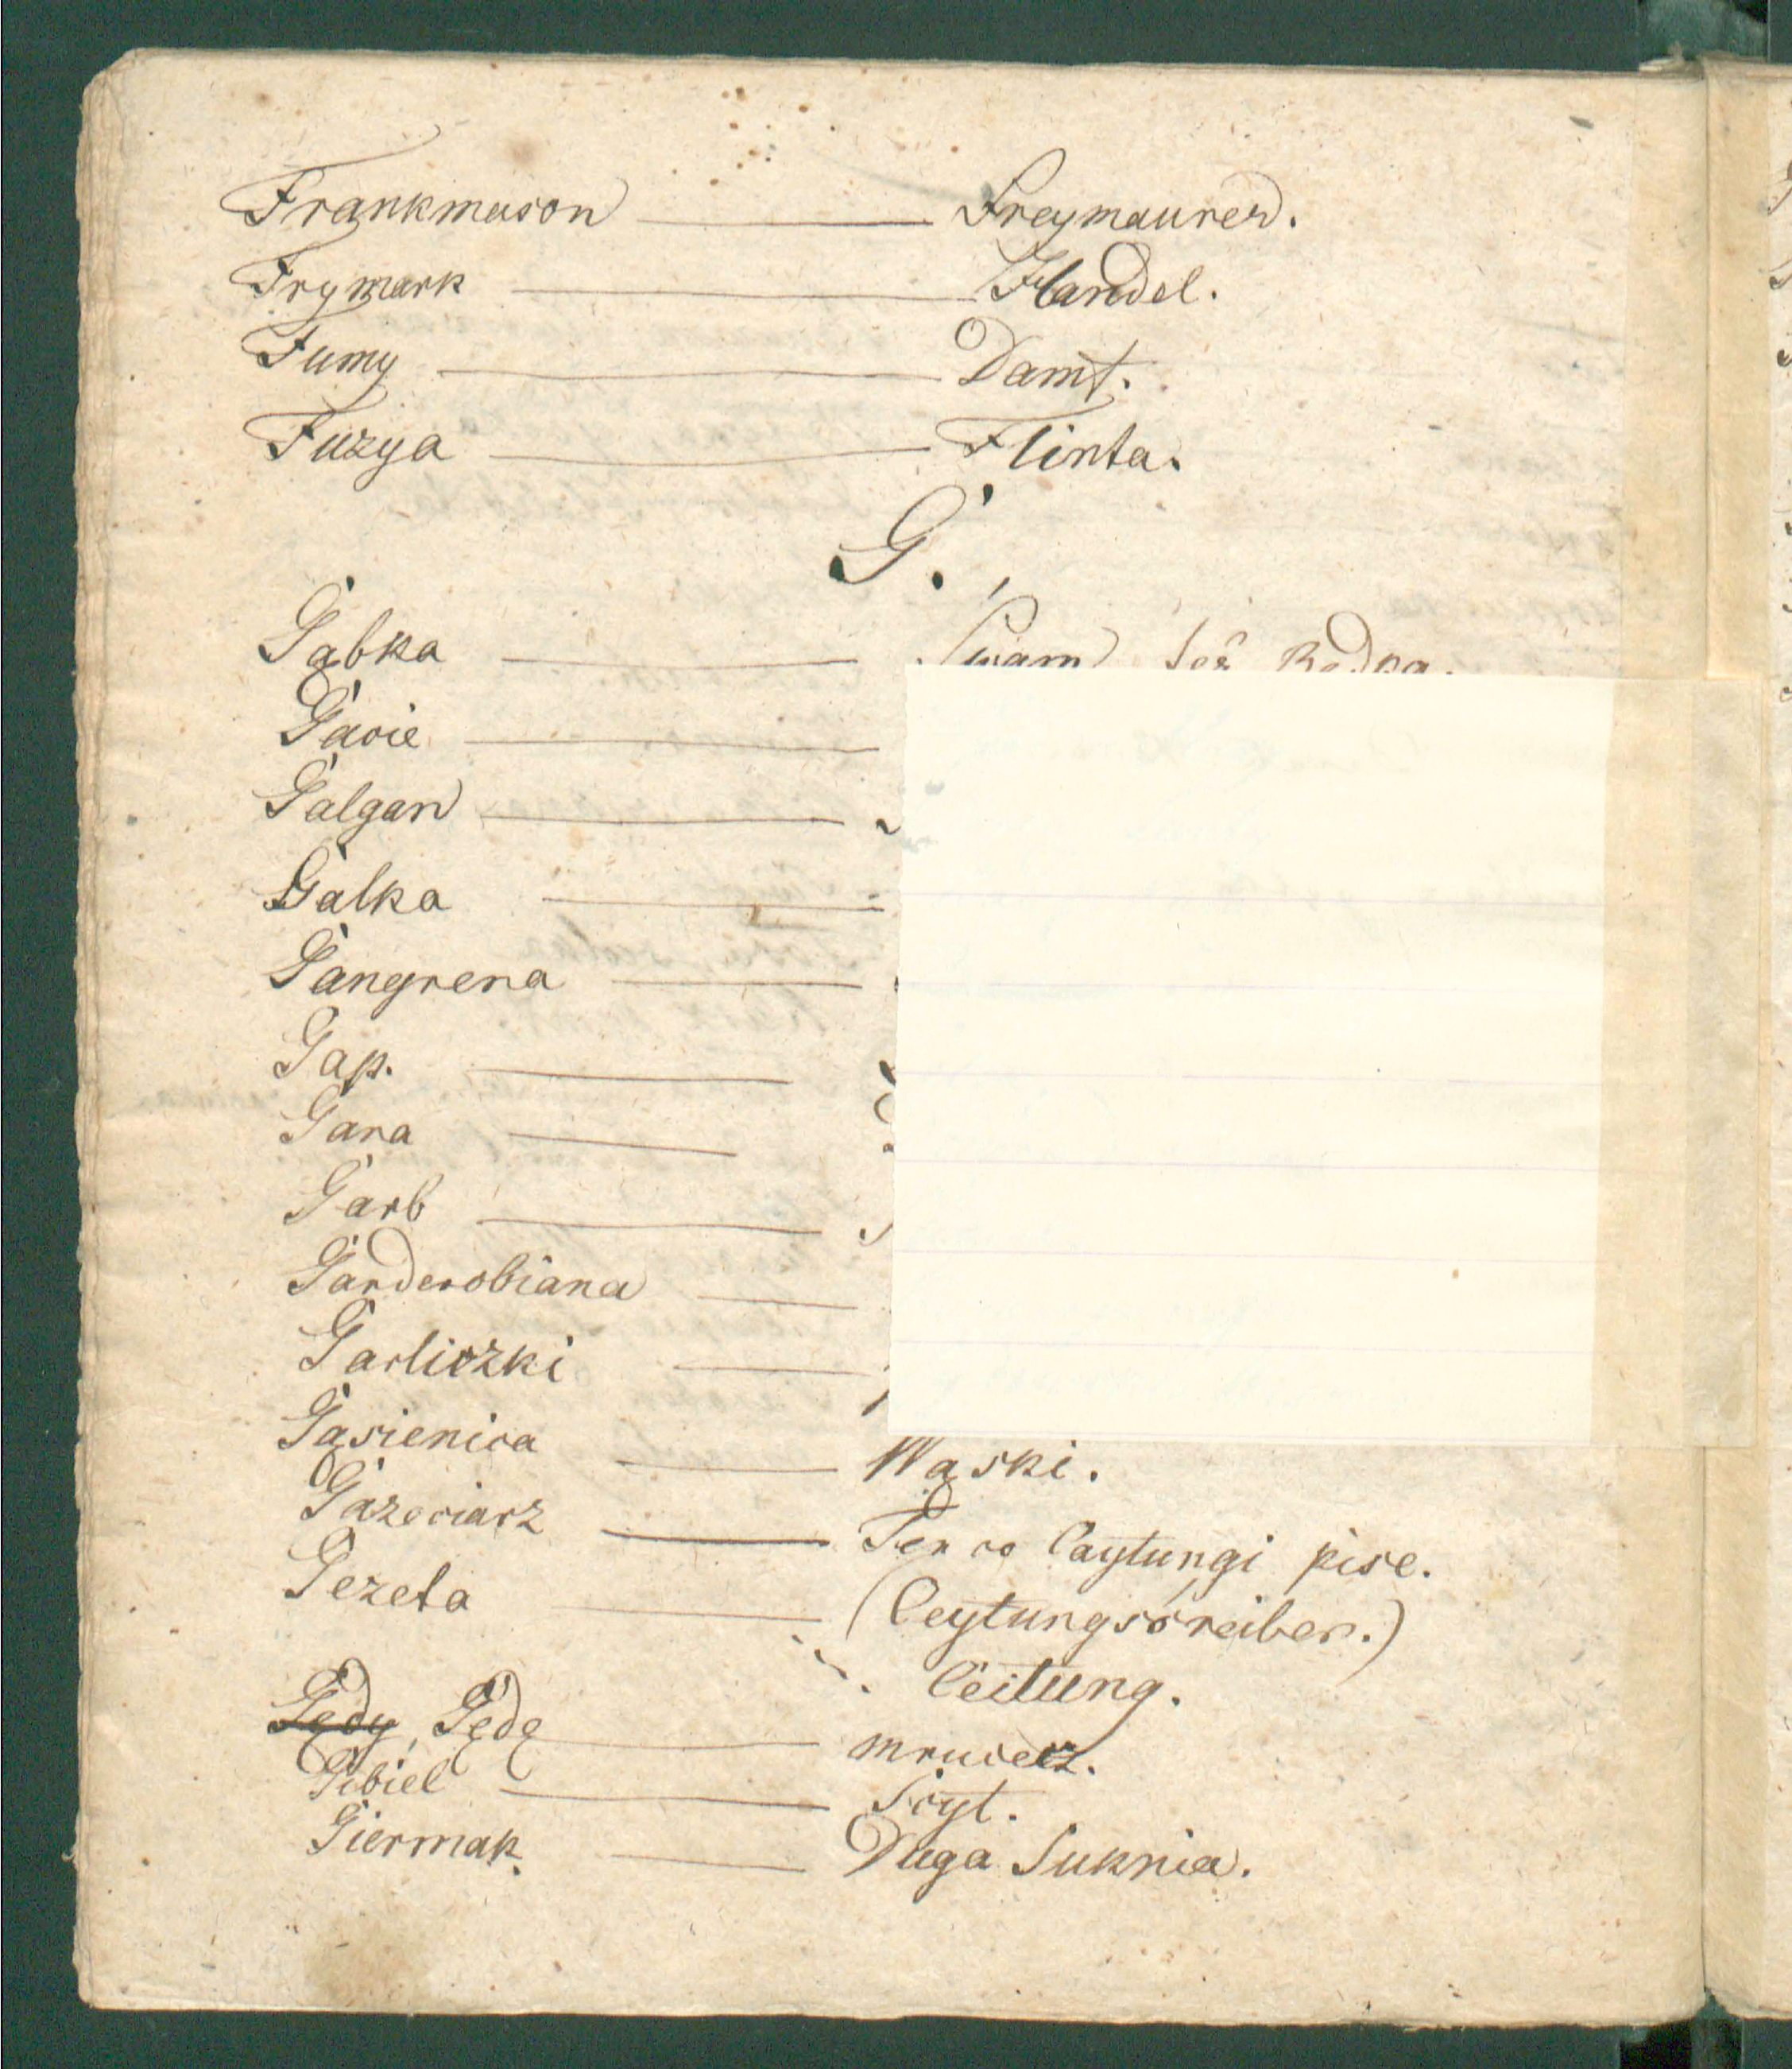 Frankmason — Freymaurer.
Frymark — Handel.
Fumy — Damf.
Fuzya — Flinta.
G.
Gąbka — Swam
Gacie —
Galgan —
Galka —
Gangrena —
Gap. —
Gara —
Garb —
Garderobiana —
Garliczki —
Gąsienica — Wąski.
Gazeciarz — Ten co Caytungi pise.
Gezeta — (Ceytungsśreiber.)
Ceitung.
Gędy, Gędę — mrucecz.
Gibiel — Scyt.
Giermak — Duga Suknia.